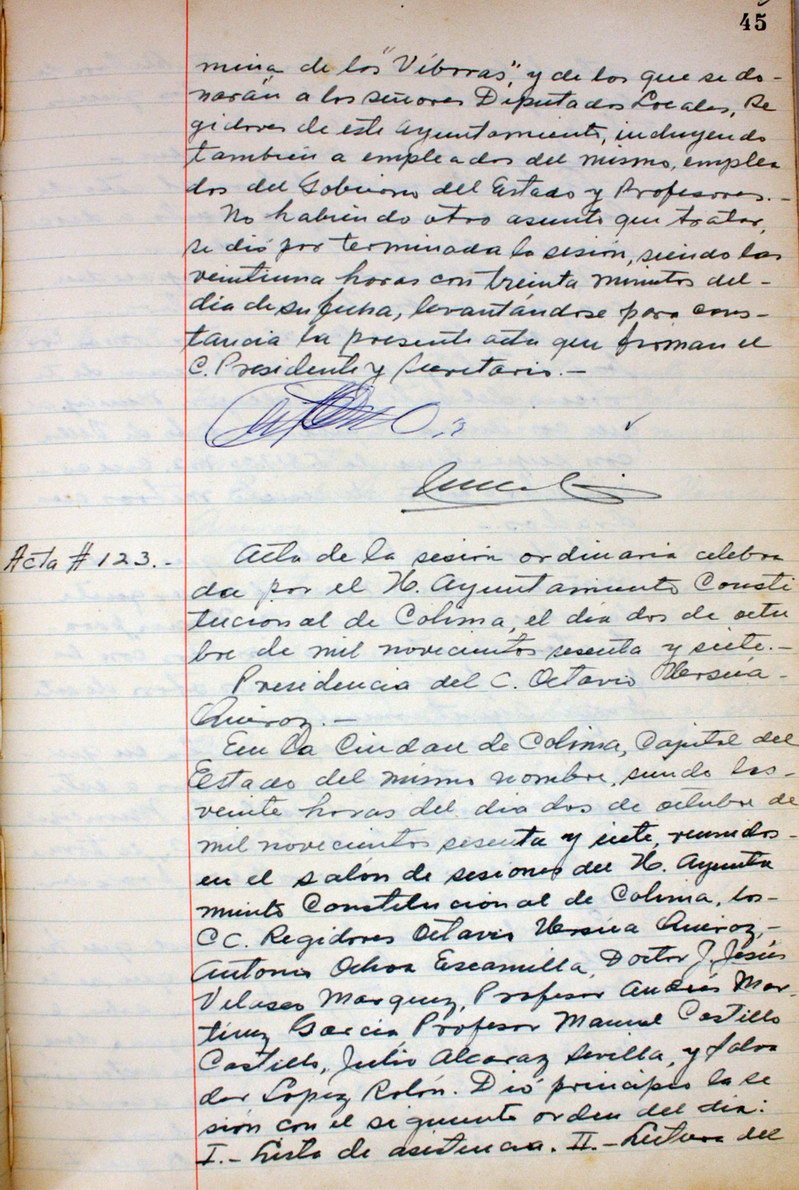 45
mina de los "Víboras", y de los que se do-
narán a los señores Diputados Locales, Re
gidores de este Ayuntamiento, incluyendo
también a empleados del mismo, emplea
dos del Gobierno del Estado y Profesores.-
No habiendo otro asunto que tratar,
se dió por terminada la sesión, siendo las
veintiuna horas con treinta minutos del-
dia de su fecha, levantándose para cons-
tancia la presente acta que firman el
C. Presidente y Secretario.-
Acta # 123.-
Acta de la sesión ordinaria celebra
da por el H. Ayuntamiento Consti
tucional de Colima, el dia dos de octu
bre de mil novecientos sesenta y siete.-
Presidencia del C. Octavio Ursúa-
Quiroz.-
En la Ciudad de Colima, Capital del
Estado del mismo nombre, siendo las-
veinte horas del dia dos de octubre de
mil novecientos sesenta y siete, reunidos-
en el salón de sesiones del H. Ayunta
miento Constitucional de Colima, los-
CC. Regidores Octavio Ursúa Quiroz,-
Antonio Ochoa Escamilla, Doctor J. Jesús
Velasco Marquez, Profesor Andrés Mar-
tinez García Profesor Manuel Castillo
Castillo, Julio Alcaraz Sevilla, y Salva
dor Lopez Rolón. Dió principio la se
sión con el siguiente orden del dia:
I.- Lista de asistencia. II.- Lectura del